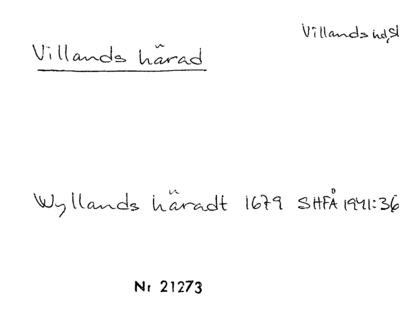 Villands hd, Sk
Villands härad
Wyllands häradt 1679 SHFÅ 1941:36
Nr 21273